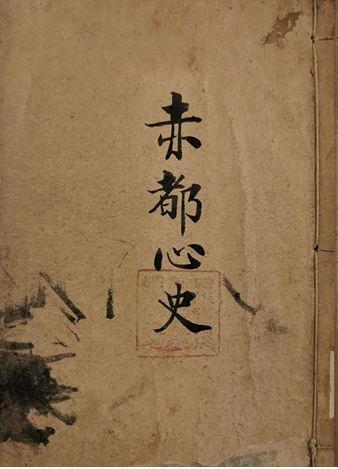 赤都心史